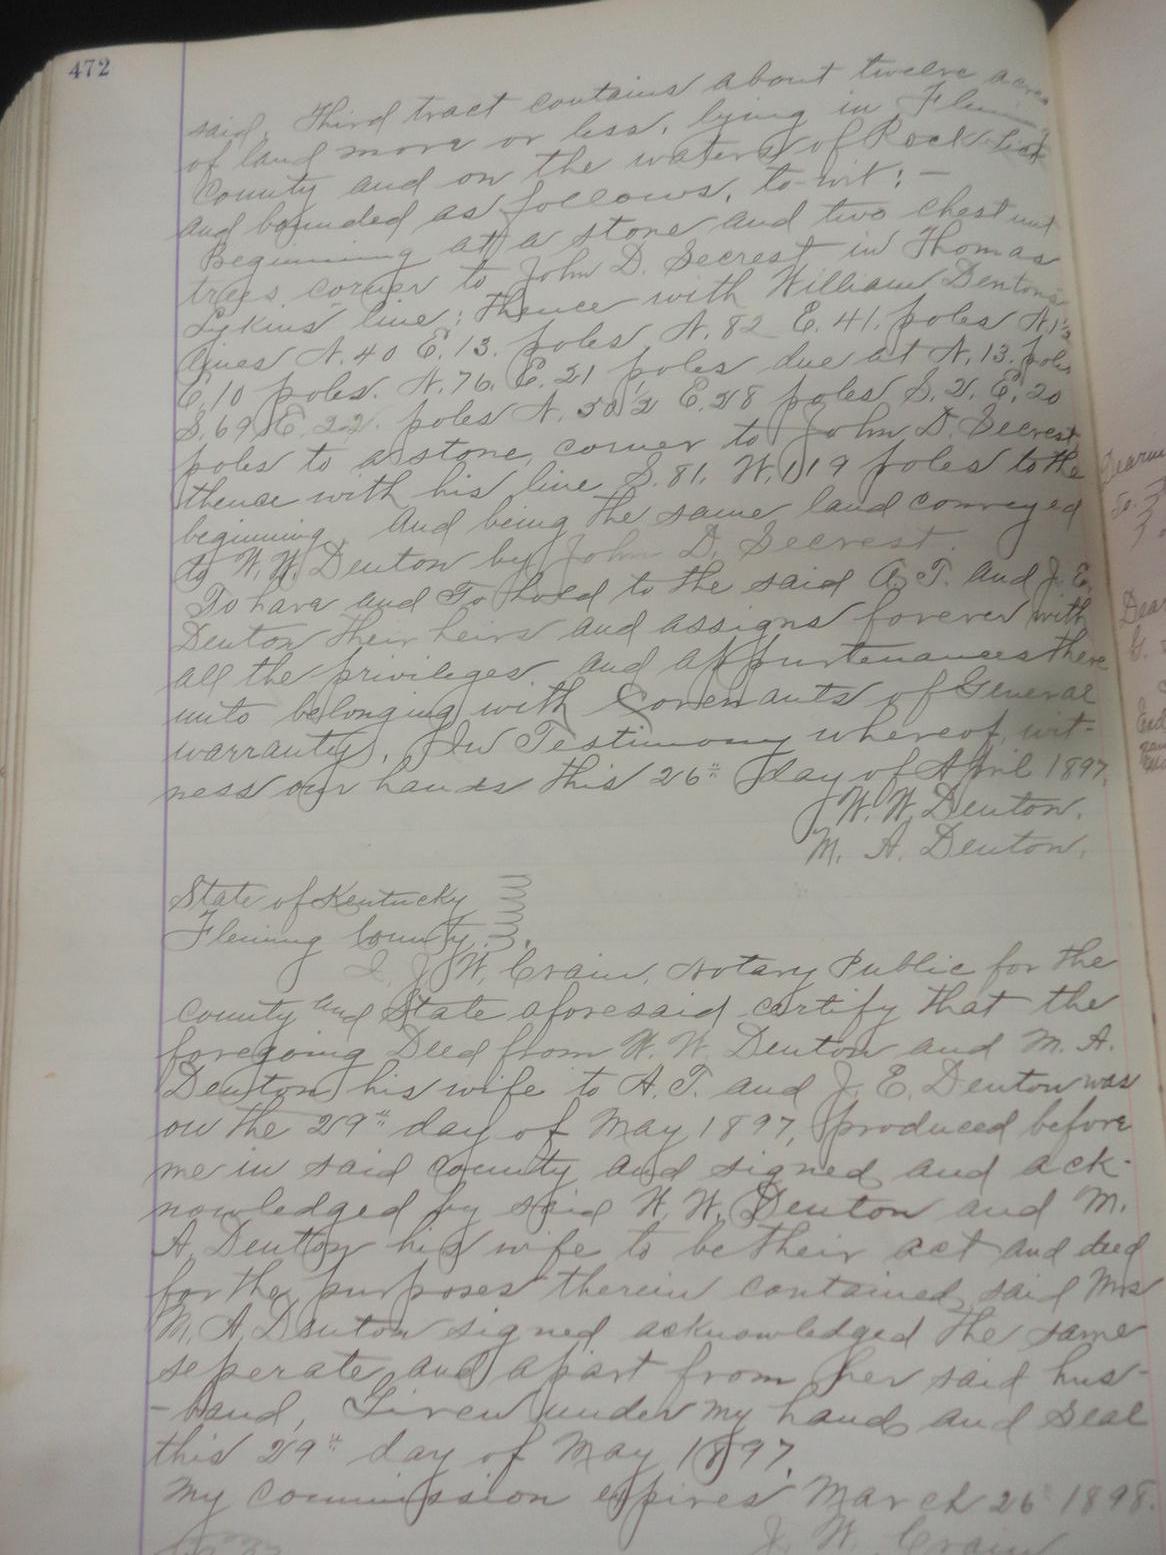 472
said. Third tract contains about twelve acres
of land more or less, lying in Fleming
County and on the waters of Rock Lick
and bounded as follows, to-wit: —
Beginning at a stone and two chestnut
trees corner to John D. Secrest in Thomas
Lykins' line; thence with William Denton's
lines N. 40 E. 13. poles, N. 82 E. 41. poles N.
E. 10 poles. N. 76. E. 21 poles due N. 13. poles
S. 69 E. 22. poles N. 50 1/2 E. 28 poles S. 2. E. 20
poles to a stone, corner to John D. Secrest
thence with his line S. 81. W. 119 poles to the
beginning. And being the same land conveyed
to W. W. Denton by John D. Secrest.
To have and To hold to the said A. T. and J. E.
Denton their heirs and assigns forever with
all the privileges and appurtenances there
unto belonging with Covenants of General
warranty. In Testimony whereof, wit-
ness our hands this 26" day of April 1897.
W. W. Denton.
M. A. Denton.
State of Kentucky
Fleming County
I, J. W. Crain, Notary Public for the
county and State aforesaid certify that the
foregoing Deed from W. W. Denton and M. A.
Denton his wife to A. T. and J. E. Denton was
on the 29" day of May 1897, produced before
me in said county and signed and ack-
nowledged by said W. W. Denton and M.
A. Denton his wife to be their act and deed
for the purposes therein contained, said Mrs
M. A. Denton signed acknowledged the same
seperate and apart from her said hus-
-band, Given under my hand and seal
this 29" day of May 1897.
My commission expires March 26 1898.
J. W. Crain